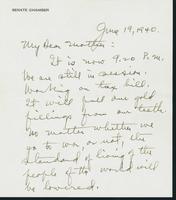 SENATE CHAMBER
June 19, 1940.
My Dear Mother:
It is now 9.20 P.M.
We are still in session.
Working on tax bill.
It will pull our gold
fillings from our teeth.
No matter whether we
go to war, or not, the
standard of living of the
people of the world will
be lowered.